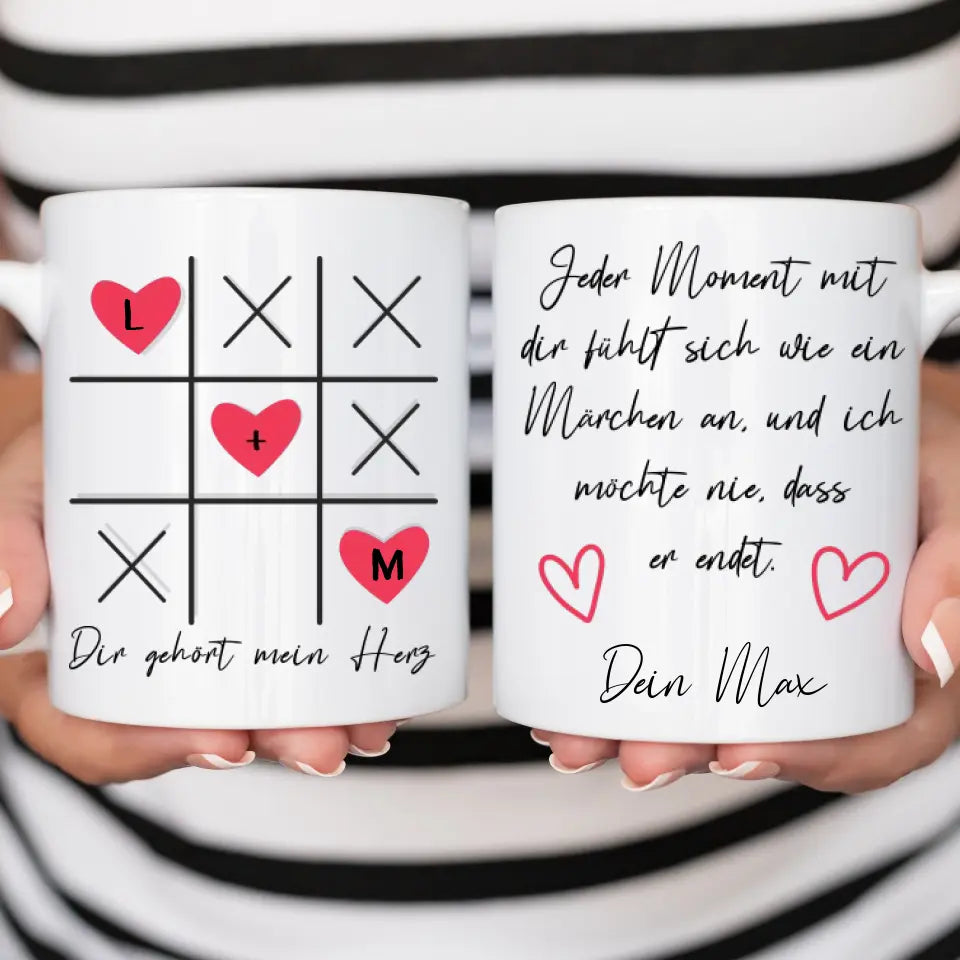 L
+
M
Dir gehört mein Herz
Jeder Moment mit
dir fühlt sich wie ein
Märchen an, und ich
möchte nie, dass
er endet.
Dein Max